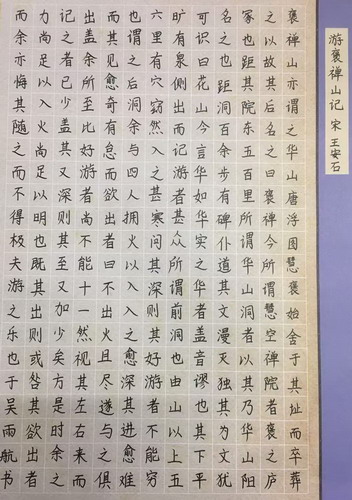 游褒禅山记 宋 王安石
褒禅山亦谓之华山唐浮图慧褒始舍于其址而卒葬
之以故其后名之曰褒禅今所谓慧空禅院者褒之庐
冢也距其院东五里所谓华山洞者以其乃华山之阳
名之也距洞百余步有碑仆道其文漫灭独其为文犹
可识曰花山今言华如华实之华者盖音谬也其下平
旷有泉侧出而记游者甚众所谓前洞也由山以上五
六里有穴窈然入之甚寒问其深则其好游者不能穷
也谓之后洞余与四人拥火以入入之愈深其进愈难
而其见愈奇有怠而欲出者曰不出火且尽遂与之俱
出盖余所至比好游者尚不能十一然视其左右来而
记之者已少盖其又深则其至又加少矣方是时余之
力尚足以入火尚足以明也既其出则或咎其欲出者
而余亦悔其随之而不得极夫游之乐也于吴雨航书